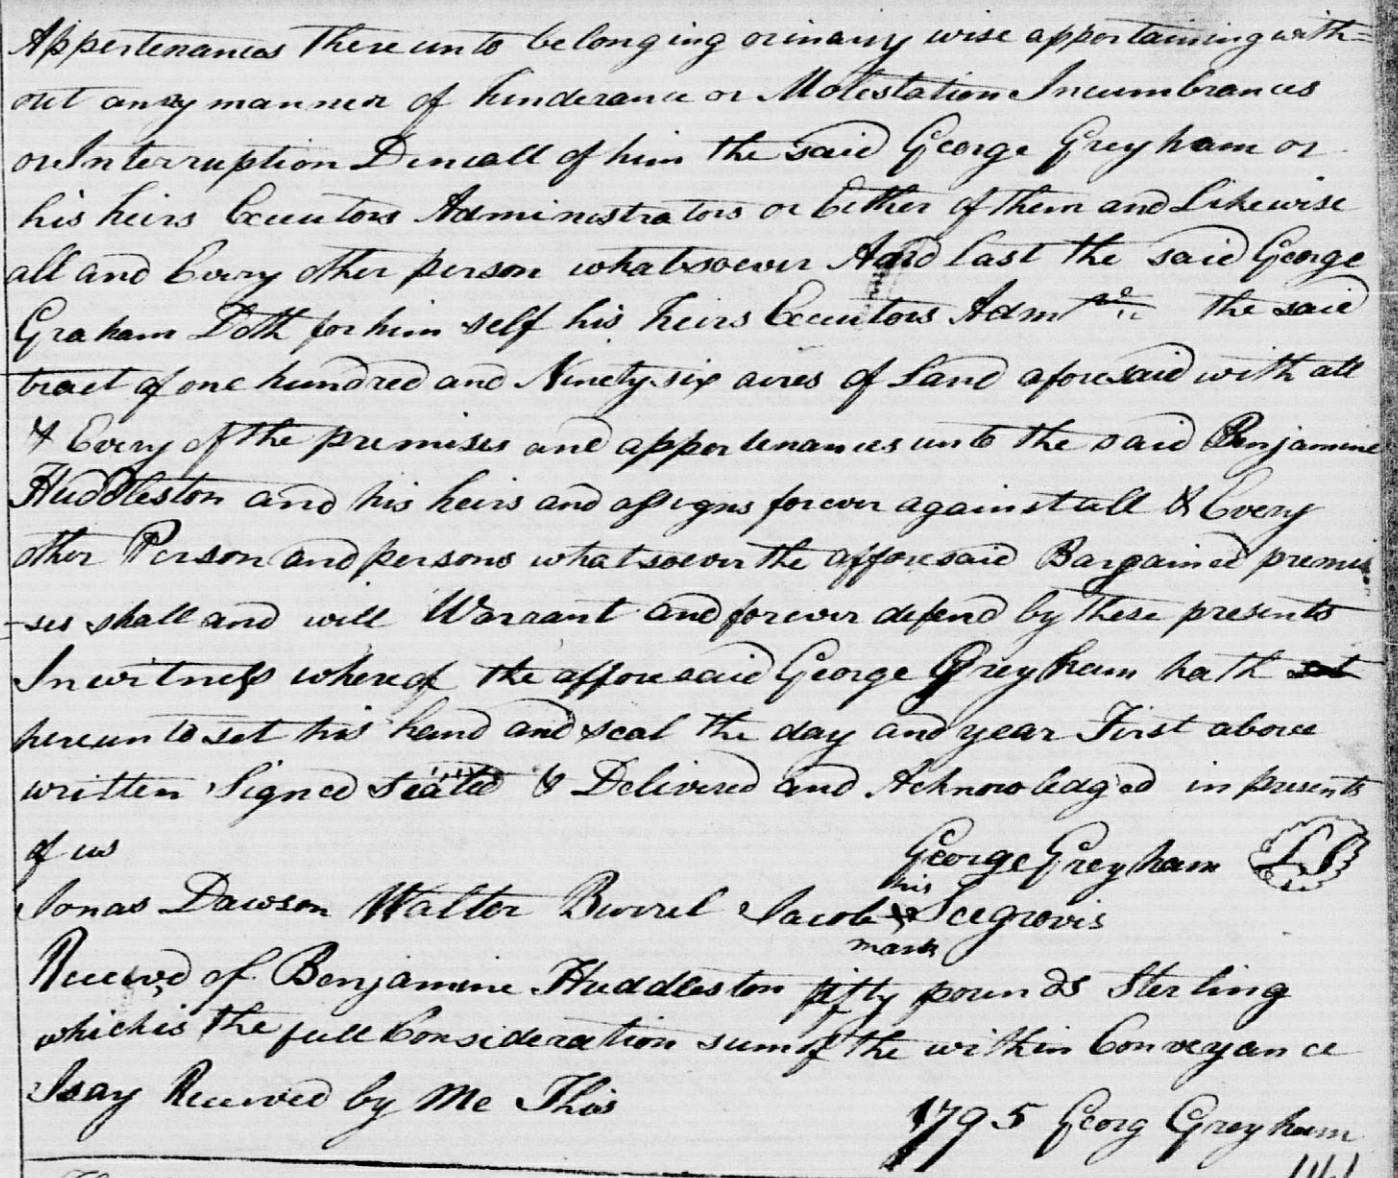 Appertenances thereunto belonging or in any wise appertaining with=
out any manner of hinderance or Molestation Incumbrances
or Interruption Deneall of him the said George Greyham or
his heirs Executors Administrators or Either of them and Likewise
all and Every other person whatsoever And last the said George
Graham Doth for him self his heirs Executors Adm the said
tract of one hundred and Ninety six acres of Land aforesaid with all
& Every of the premises and appertenances unto the said Benjamine
Huddleston and his heirs and assigns forever against all & Every
other Person and persons whatsoever the afforesaid Bargained premi
-ses shall and will Warrant and forever defend by these presents
In witness whereof the afforesaid George Greyham hath set
hereunto set his hand and seal the day and year First above
written Signed Sealed & Delivered and Acknowledged in presents
of us George Greyham LS
Jonas Dawson Walter Burrel Jacob his mark Seegrovis
Received of Benjamine Huddleston fifty pounds Sterling
which is the full Consideration sum of the within Conveyance
I say Received by Me This 1795 Georg Greyham